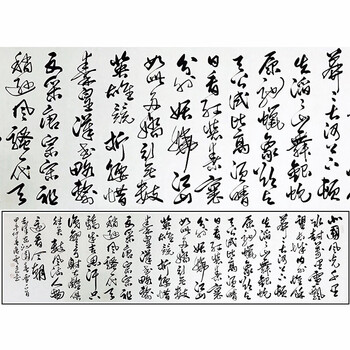 莽莽大河上下顿
失滔滔山舞银蛇
原驰蜡象欲与
天公试比高须
日看红装素裹
分外妖娆江山
如此多娇引无数
英雄竞折腰惜
秦皇汉武略输
文采唐宗宋祖
稍逊风骚一代天
北国风光千里
冰封万里雪飘
望长城内外惟余
莽莽大河上下顿
失滔滔山舞银蛇
原驰蜡象欲与
天公试比高须
日看红装素裹
分外妖娆江山
如此多娇引无数
英雄竞折腰惜
秦皇汉武略输
文采唐宗宋祖
稍逊风骚一代天
骄成吉思汗只
识弯弓射大雕
俱往矣数风流人物
还看今朝